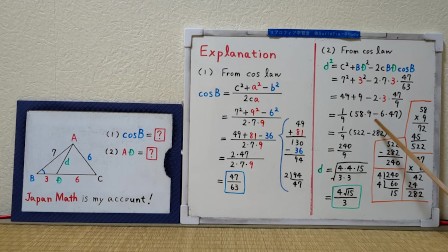 (1) cosB = ?
(2) AD = ?
A
7
d
6
B
3
D
6
C
Japan Math is my account!
Explanation
(1) From cos law
cosB = (c²+a²-b²)/(2ca)
= (7²+9²-6²)/(2·7·9)
= (49+81-36)/(2·7·9)
= (2·47)/(2·7·9)
= 47/63
49
+ 81
130
- 36
94
2)94
47
(2) From cos law
d² = c²+BD²-2cBDcosB
= 7²+3²-2·7·3·47/63
= 49+9-2·3·47/9
= 1/9(58·9-6·47)
= 1/9(522-282)
= 240/9
d = √(4·4·15/(3·3))
= 4√15/3
58
× 9
72
45
522
522
- 282
240
4)240
4)60
15
47
× 6
42
24
282